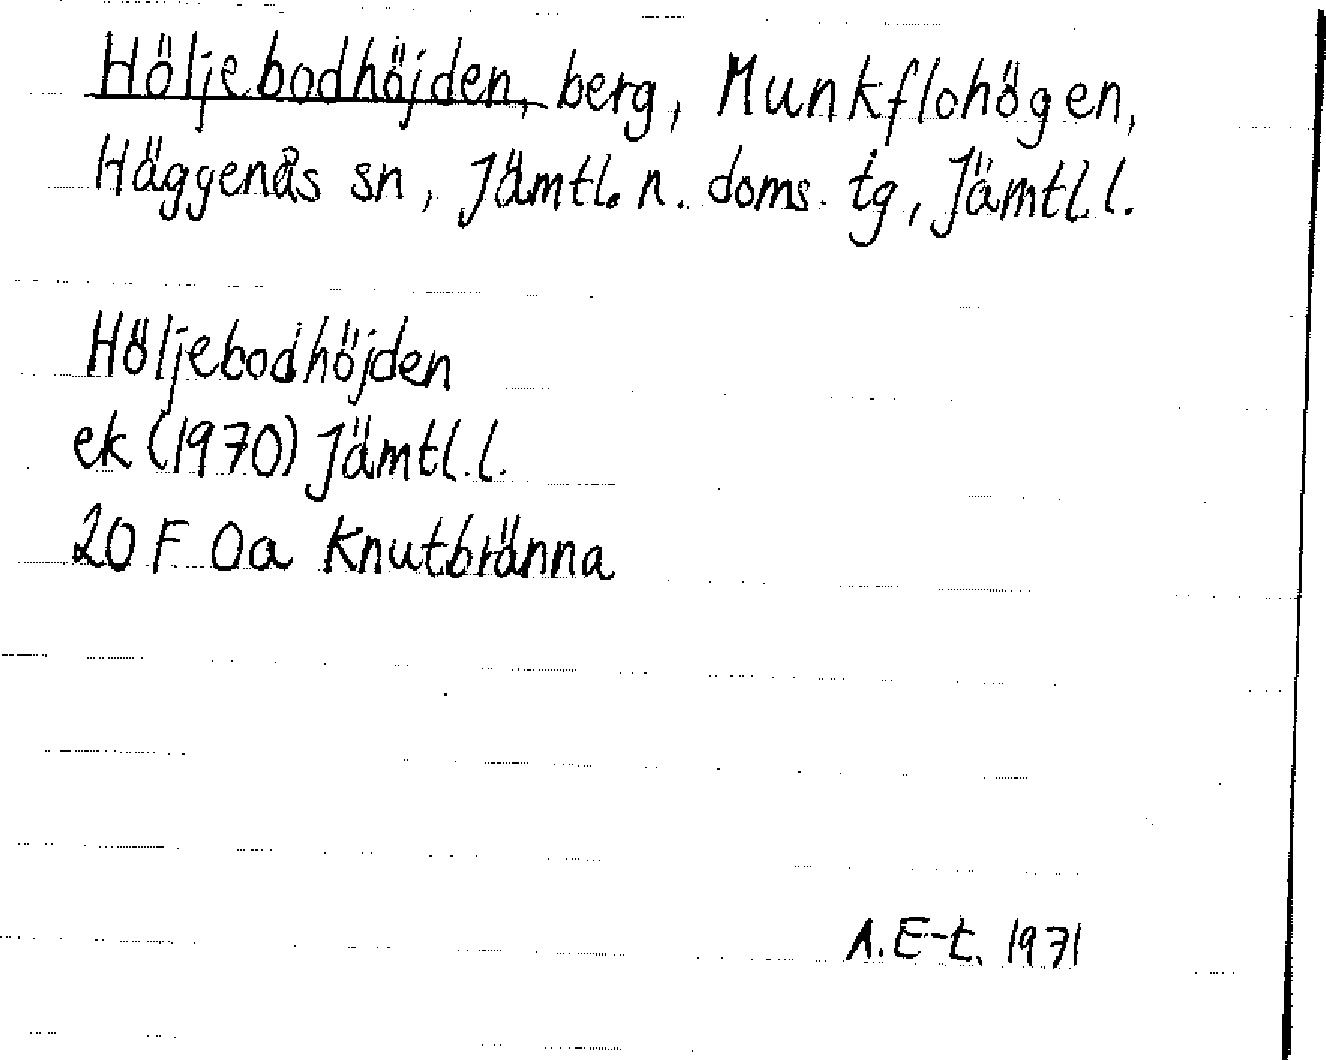 Höljebodhöjden, berg, Munkflohögen,
Häggenås sn, Jämtl. n. doms. tg, Jämtl. l.
Höljebodhöjden
ek (1970) Jämtl. l.
20 F 0a Knutbränna
A. E-t. 1971